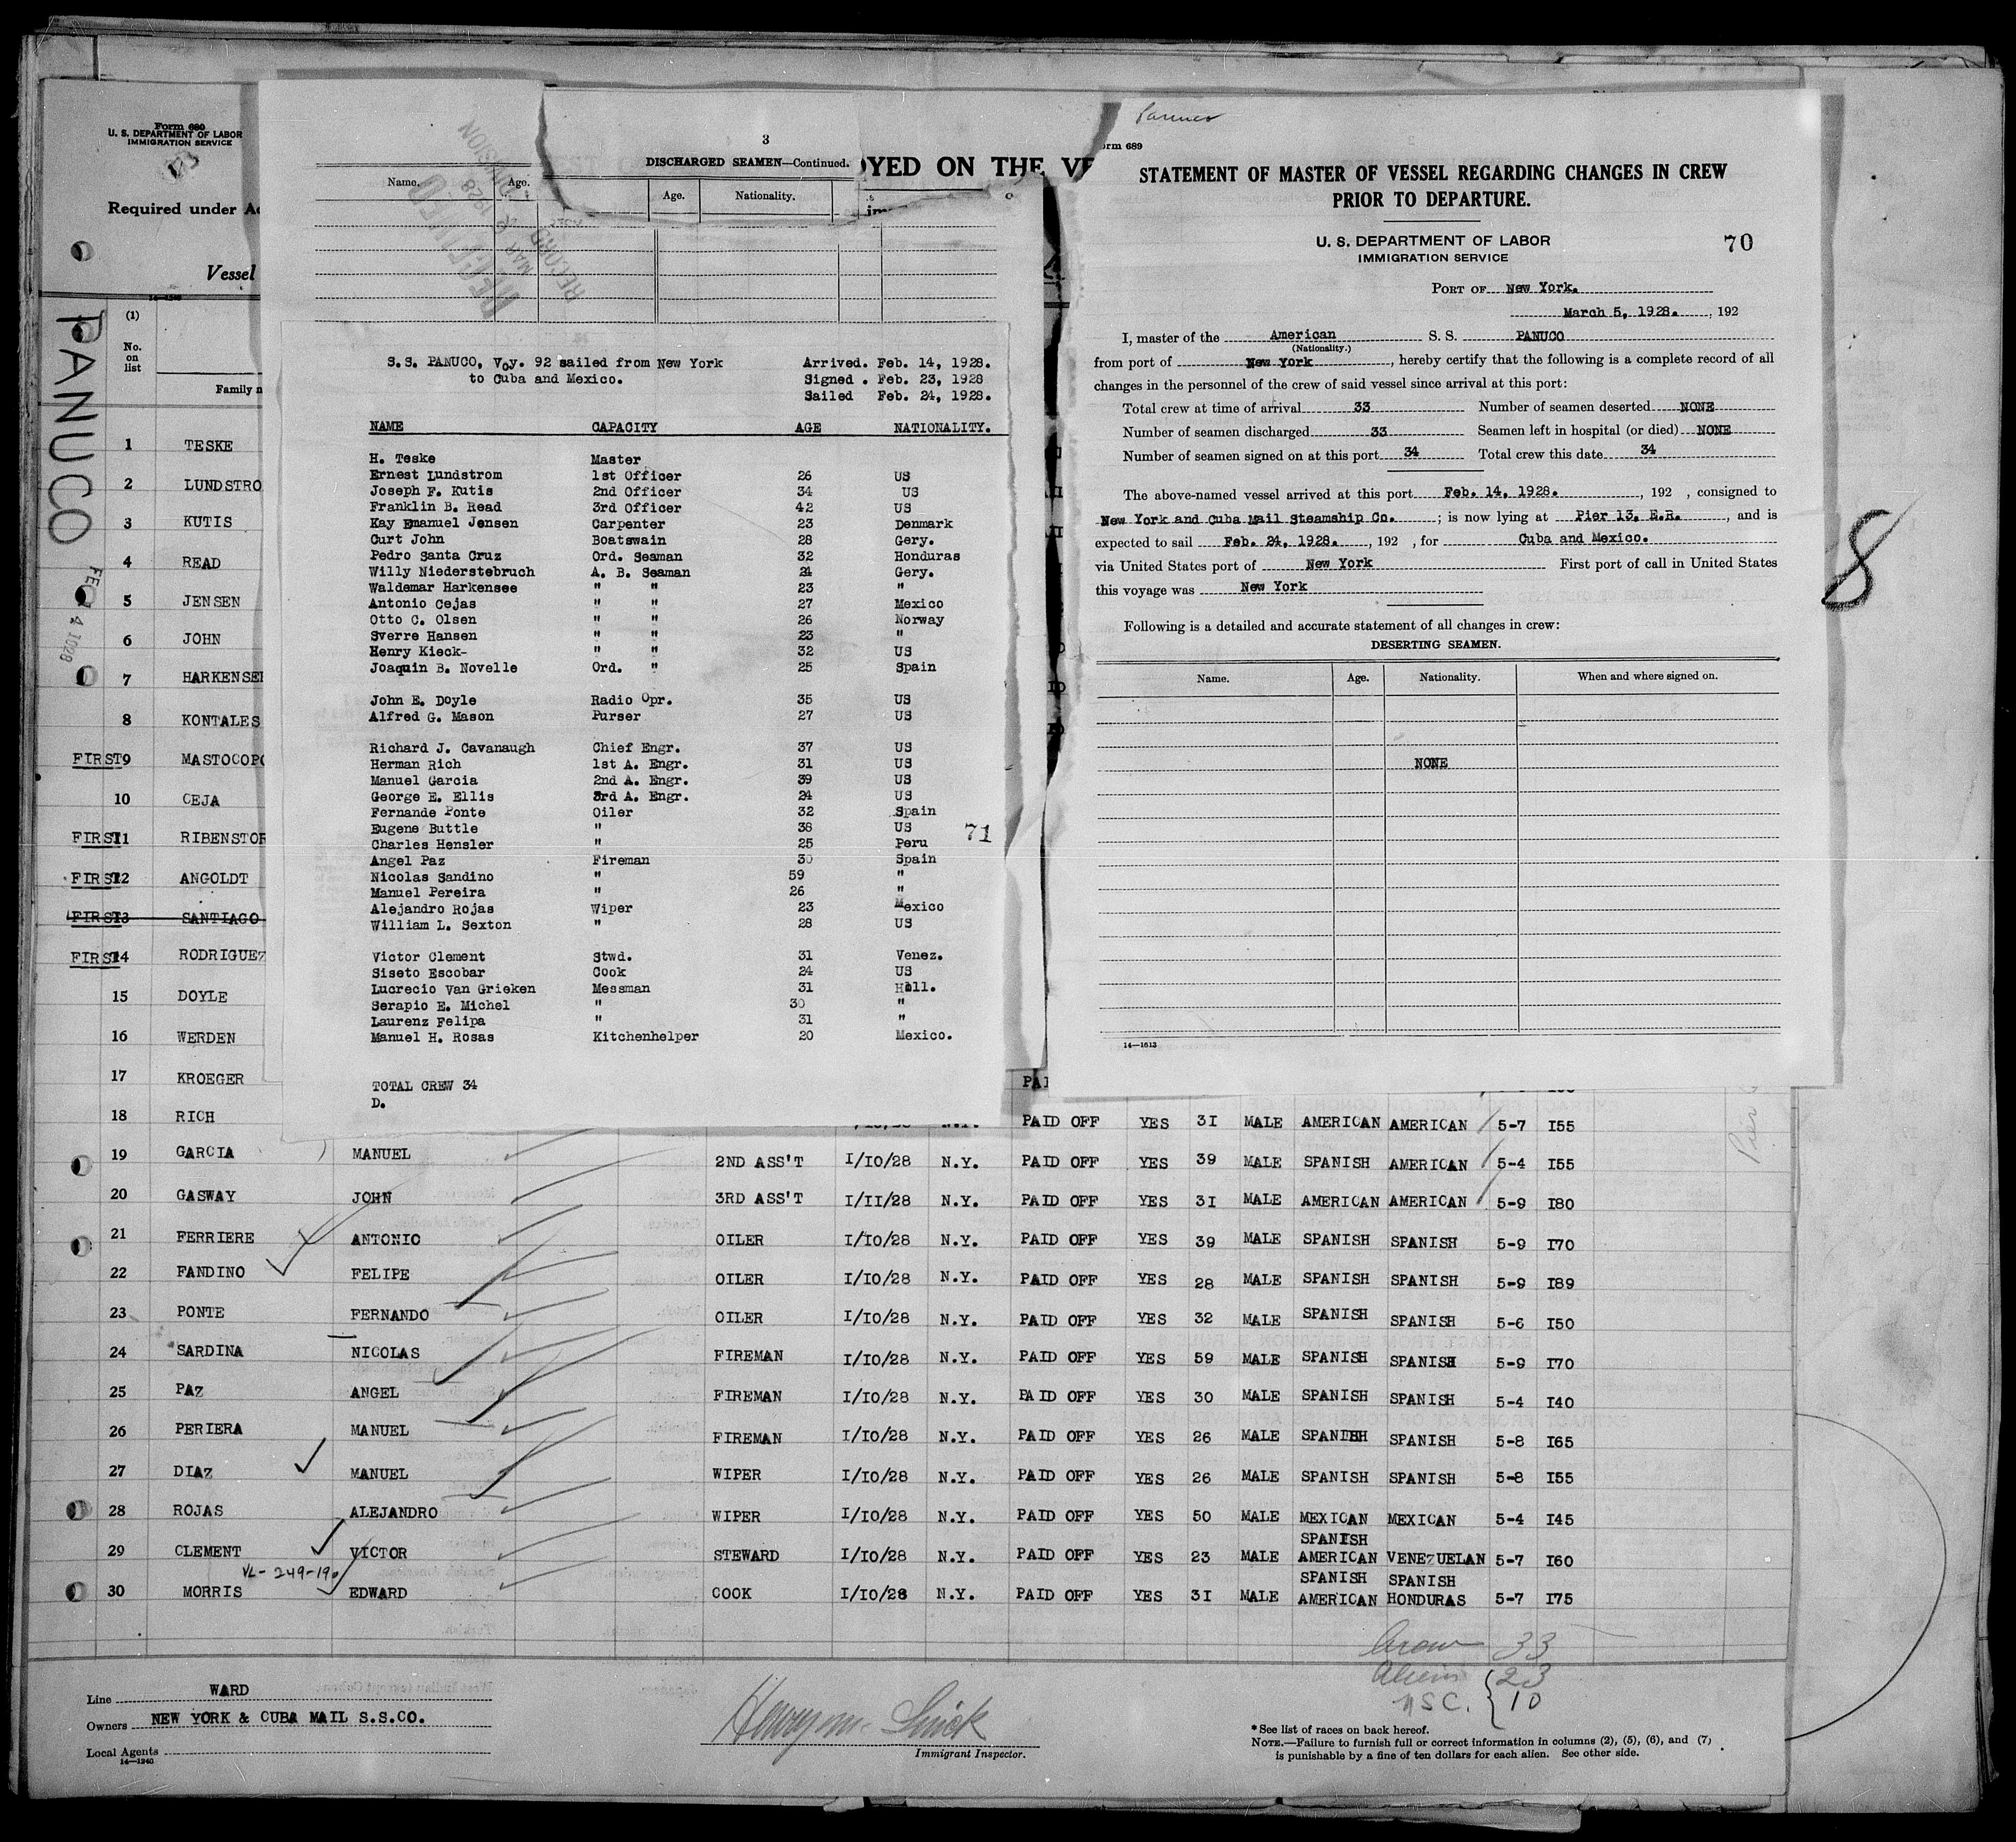 Form 680
U. S. DEPARTMENT OF LABOR
IMMIGRATION SERVICE
Required under Ac
Vessel
14—1240
PANUCO
(1)
No.
on
list
Family n
1 TESKE
2 LUNDSTRO
3 KUTIS
4 READ
5 JENSEN
6 JOHN
7 HARKENSEE
8 KONTALES
FIRST 9 MASTOCOPO
10 CEJA
FIRST 11 RIBENSTOR
FIRST 12 ANGOLDT
FIRST 13 SANTIAGO
FIRST 14 RODRIGUEZ
15 DOYLE
16 WERDEN
17 KROEGER
18 RICH
3
DISCHARGED SEAMEN—Continued.
OYED ON THE VE
Name. Age.
Age. Nationality.
RECEIVED
MAR 6 1928
RECORD DIVISION
S.S. PANUCO, Voy. 92 sailed from New York
to Cuba and Mexico.
Arrived. Feb. 14, 1928.
Signed . Feb. 23, 1928
Sailed Feb. 24, 1928.
NAME CAPACITY AGE NATIONALITY.
H. Teske Master
Ernest Lundstrom 1st Officer 26 US
Joseph F. Kutis 2nd Officer 34 US
Franklin B. Read 3rd Officer 42 US
Kay Emanuel Jensen Carpenter 23 Denmark
Curt John Boatswain 28 Gery.
Pedro Santa Cruz Ord. Seaman 32 Honduras
Willy Niederstebruch A. B. Seaman 24 Gery.
Waldemar Harkensee " " 23 "
Antonio Cejas " " 27 Mexico
Otto C. Olsen " " 26 Norway
Sverre Hansen " " 23 "
Henry Kieck- " " 32 US
Joaquin B. Novelle Ord. " 25 Spain
John E. Doyle Radio Opr. 35 US
Alfred G. Mason Purser 27 US
Richard J. Cavanaugh Chief Engr. 37 US
Herman Rich 1st A. Engr. 31 US
Manuel Garcia 2nd A. Engr. 39 US
George E. Ellis 3rd A. Engr. 24 US
Fernande Ponte Oiler 32 Spain
Eugene Buttle " 38 US
71
Charles Hensler " 25 Peru
Angel Paz Fireman 30 Spain
Nicolas Sandino " 59 "
Manuel Pereira " 26 "
Alejandro Rojas Wiper 23 Mexico
William L. Sexton " 28 US
Victor Clement Stwd. 31 Venez.
Siseto Escobar Cook 24 US
Lucrecio Van Grieken Messman 31 Holl.
Serapio E. Michel " 30 "
Laurenz Felipa " 31 "
Manuel H. Rosas Kitchenhelper 20 Mexico.
TOTAL CREW 34
D.
Panuco
orm 689
STATEMENT OF MASTER OF VESSEL REGARDING CHANGES IN CREW
PRIOR TO DEPARTURE.
U. S. DEPARTMENT OF LABOR
IMMIGRATION SERVICE
70
PORT OF New York.
March 5, 1928. , 192
I, master of the American S. S. PANUCO
(Nationality.)
from port of New York , hereby certify that the following is a complete record of all
changes in the personnel of the crew of said vessel since arrival at this port:
Total crew at time of arrival 33 Number of seamen deserted NONE
Number of seamen discharged 33 Seamen left in hospital (or died) NONE
Number of seamen signed on at this port 34 Total crew this date 34
The above-named vessel arrived at this port Feb. 14, 1928. , 192 , consigned to
New York and Cuba Mail Steamship Co. ; is now lying at Pier 13, E.R. , and is
expected to sail Feb. 24, 1928. , 192 , for Cuba and Mexico.
via United States port of New York First port of call in United States
this voyage was New York
Following is a detailed and accurate statement of all changes in crew:
DESERTING SEAMEN.
Name. Age. Nationality. When and where signed on.
NONE
14—1613
8
PAID OFF YES 31 MALE AMERICAN AMERICAN 5-7 155
19 GARCIA MANUEL 2ND ASS'T 1/10/28 N.Y. PAID OFF YES 39 MALE SPANISH AMERICAN 5-4 155
20 GASWAY JOHN 3RD ASS'T 1/11/28 N.Y. PAID OFF YES 31 MALE AMERICAN AMERICAN 5-9 180
21 FERRIERE ANTONIO OILER 1/10/28 N.Y. PAID OFF YES 39 MALE SPANISH SPANISH 5-9 170
22 FANDINO FELIPE OILER 1/10/28 N.Y. PAID OFF YES 28 MALE SPANISH SPANISH 5-9 189
23 PONTE FERNANDO OILER 1/10/28 N.Y. PAID OFF YES 32 MALE SPANISH SPANISH 5-6 150
24 SARDINA NICOLAS FIREMAN 1/10/28 N.Y. PAID OFF YES 59 MALE SPANISH SPANISH 5-9 170
25 PAZ ANGEL FIREMAN 1/10/28 N.Y. PAID OFF YES 30 MALE SPANISH SPANISH 5-4 140
26 PERIERA MANUEL FIREMAN 1/10/28 N.Y. PAID OFF YES 26 MALE SPANISH SPANISH 5-8 165
27 DIAZ MANUEL WIPER 1/10/28 N.Y. PAID OFF YES 26 MALE SPANISH SPANISH 5-8 155
28 ROJAS ALEJANDRO WIPER 1/10/28 N.Y. PAID OFF YES 50 MALE MEXICAN MEXICAN 5-4 145
SPANISH
29 CLEMENT VICTOR STEWARD 1/10/28 N.Y. PAID OFF YES 23 MALE AMERICAN VENEZUELAN 5-7 160
SPANISH SPANISH
30 MORRIS EDWARD COOK 1/10/28 N.Y. PAID OFF YES 31 MALE AMERICAN HONDURAS 5-7 175
Crew 33
Aliens 23
USC. 10
Line WARD
Owners NEW YORK & CUBA MAIL S.S.CO.
Local Agents
14—1240
Immigrant Inspector.
* See list of races on back hereof.
NOTE.—Failure to furnish full or correct information in columns (2), (5), (6), and (7)
is punishable by a fine of ten dollars for each alien. See other side.